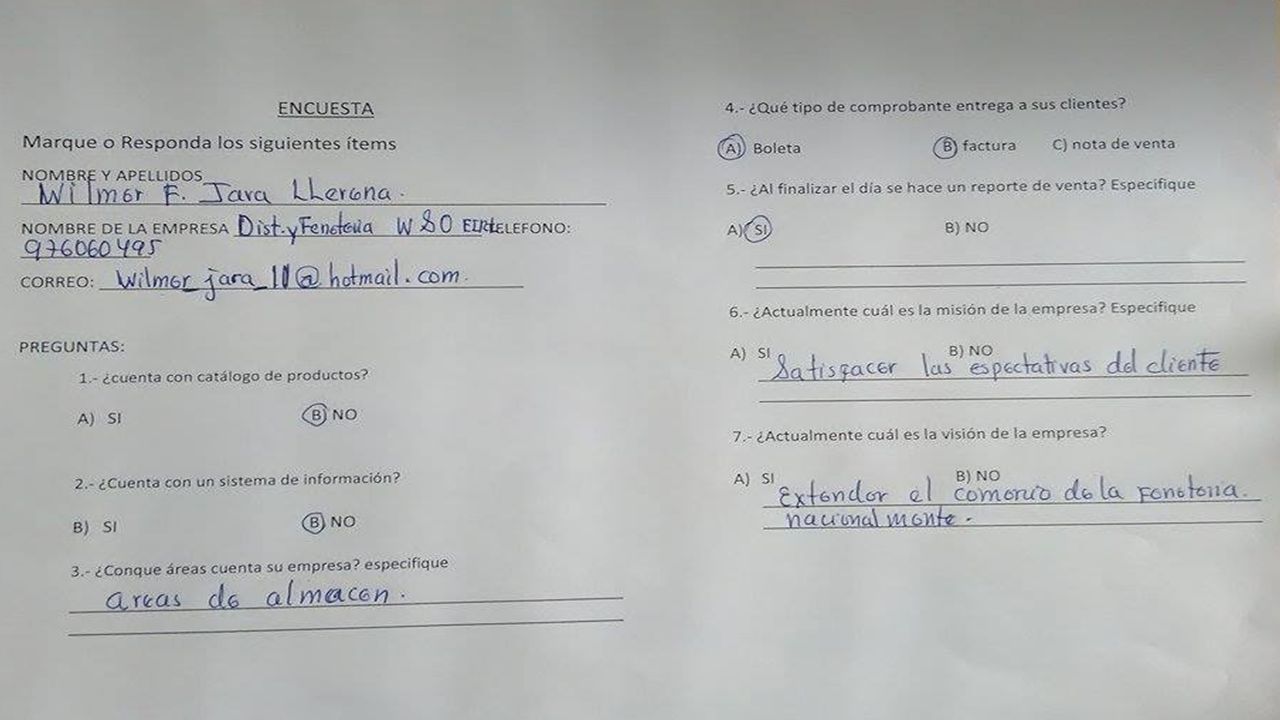 ENCUESTA
Marque o Responda los siguientes ítems
NOMBRE Y APELLIDOS
Wilmer F. Jara LLerena.
NOMBRE DE LA EMPRESA Dist. y Ferreteria W SO EIRL TELEFONO:
976060495
CORREO: Wilmer_jara_11@hotmail.com.
PREGUNTAS:
1.- ¿cuenta con catálogo de productos?
A) SI B) NO
2.- ¿Cuenta con un sistema de información?
B) SI B) NO
3.- ¿Conque áreas cuenta su empresa? especifique
areas de almacen.
4.- ¿Qué tipo de comprobante entrega a sus clientes?
A) Boleta B) factura C) nota de venta
5.- ¿Al finalizar el día se hace un reporte de venta? Especifique
A) SI B) NO
6.- ¿Actualmente cuál es la misión de la empresa? Especifique
A) SI B) NO
Satisfacer las espectativas del cliente
7.- ¿Actualmente cuál es la visión de la empresa?
A) SI B) NO
Extender el comercio de la Ferreteria.
nacional mente.